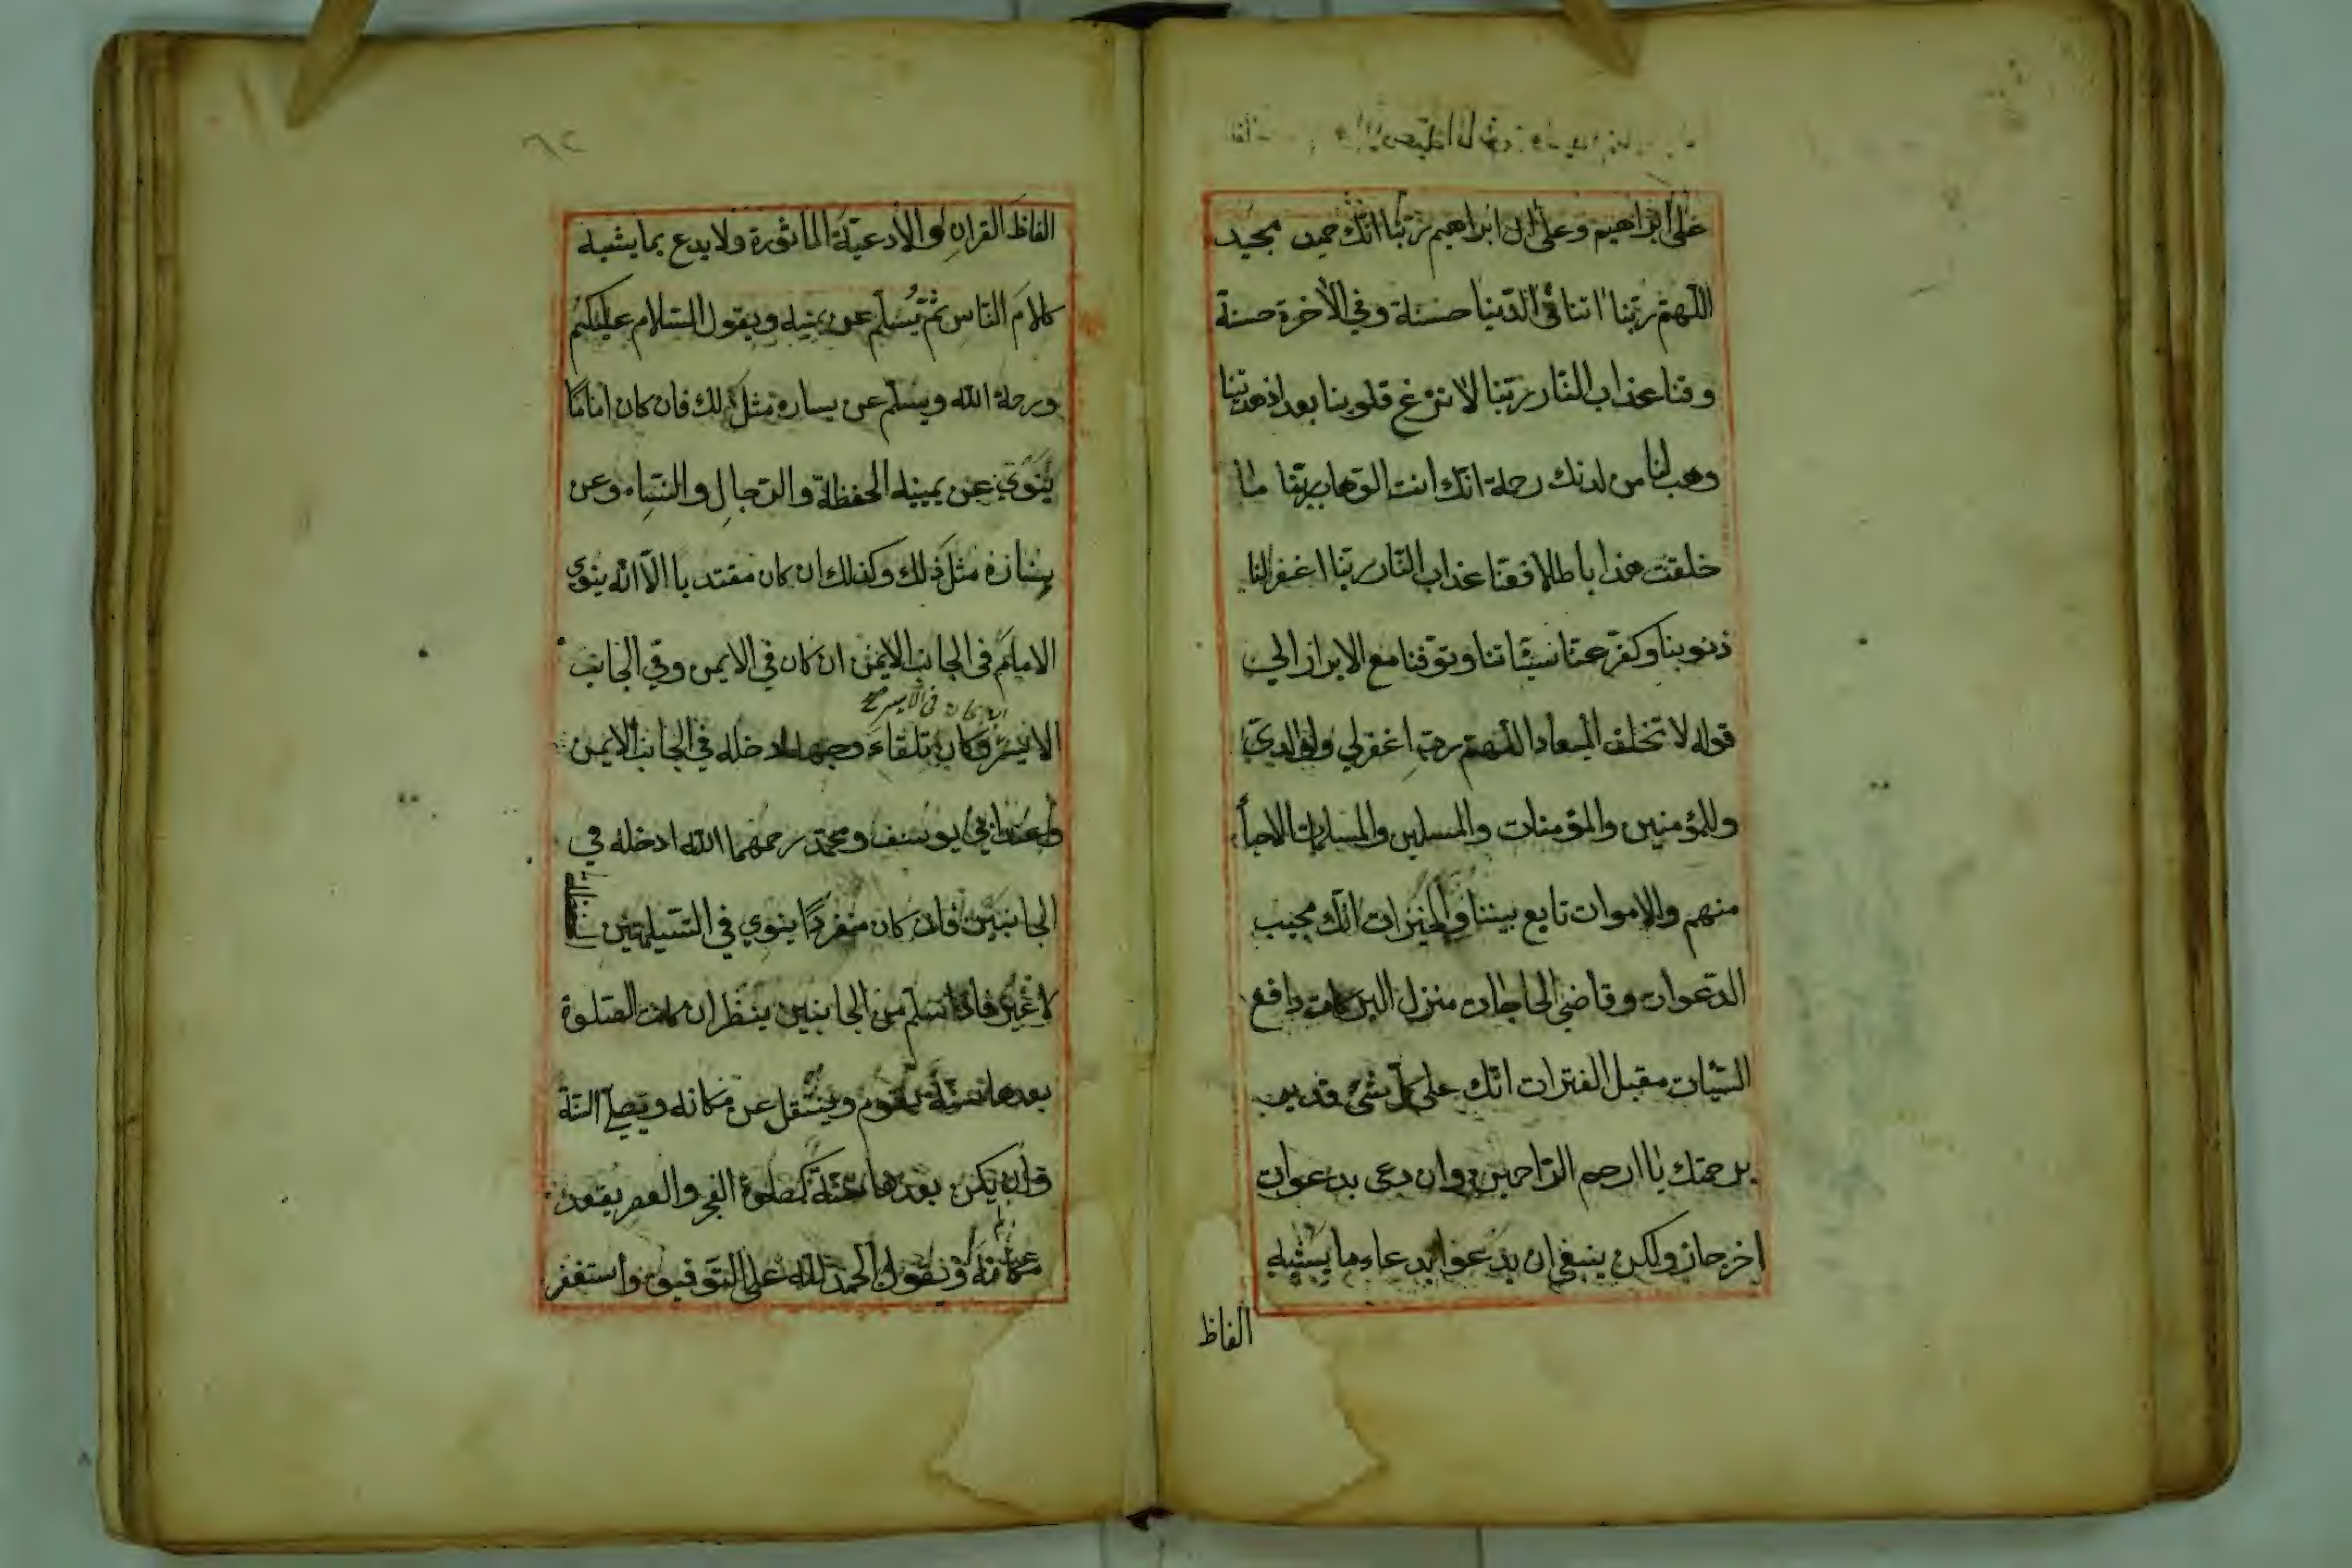 على ابراهيم وعلى ال ابراهيم ربنا انك حميد مجيد
اللهم ربنا اتنا في الدنيا حسنة وفي الاخرة حسنة
وقنا عذاب النار ربنا لا تزغ قلوبنا بعد اذ هديتنا
وهب لنا من لدنك رحمة انك انت الوهاب ربنا ما
خلقت هذا باطلا فقنا عذاب النار ربنا اغفر لنا
ذنوبنا وكفر عنا سيئاتنا وتوفنا مع الابرار الى
قوله لا تخلف الميعاد اللهم رب اغفر لي ولوالدي
وللمؤمنين والمؤمنات والمسلمين والمسلمات الاحياء
منهم والاموات تابع بيننا والخيرات انك مجيب
الدعوات وقاضي الحاجات منزل البركات دافع
السيئات مقيل العثرات انك على كل شئ قدير
برحمتك يا ارحم الراحمين وان دعى بدعوات
اخر جاز ولكن ينبغي ان يدعوا بدعاء ما يشبه
الفاظ
٦٢
الفاظ القران والادعية الماثورة ولا يدع بما يشبه
كلام الناس ثم يسلم عن يمينه ويقول السلام عليكم
ورحمة الله ويسلم عن يساره مثل ذلك فان كان اماما
ينوي عن يمينه الحفظة والرجال والنساء وعن
يساره مثل ذلك وكذلك ان كان مقتديا الا انه ينوي
الامام في الجانب الايمن ان كان في الايمن وفي الجانب
ان كان في الايسر صح
الايسر وكان تلقاء وجهه ادخله في الجانب الايمن
وعند ابي يوسف ومحمد رحمهما الله ادخله في
الجانبين فان كان منفردا ينوي في التسليمتين
لا غير فاذا سلم من الجانبين ينظر ان كانت الصلوة
بعدها سنة يقوم وينتقل عن مكانه ويصلي السنة
وان يكن بعدها سنة كصلوة الفجر والعصر يقعد
مكانه ويقول الحمد لله على التوفيق واستغفر